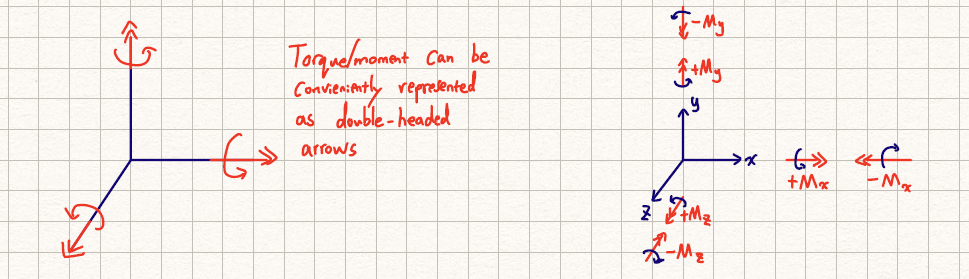 Torque/moment can be
conveniently represented
as double-headed
arrows
-My
+My
y
x
+Mx
-Mx
z
+Mz
-Mz